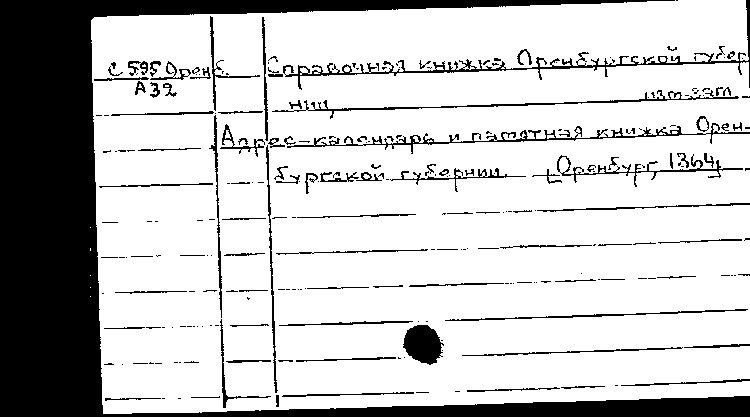 С 595 Оренб. Справочная книжка Оренбургской губер
А32
нии, изт-зат
Адрес-календарь и памятная книжка Орен-
бургской губернии. [Оренбург, 1864]